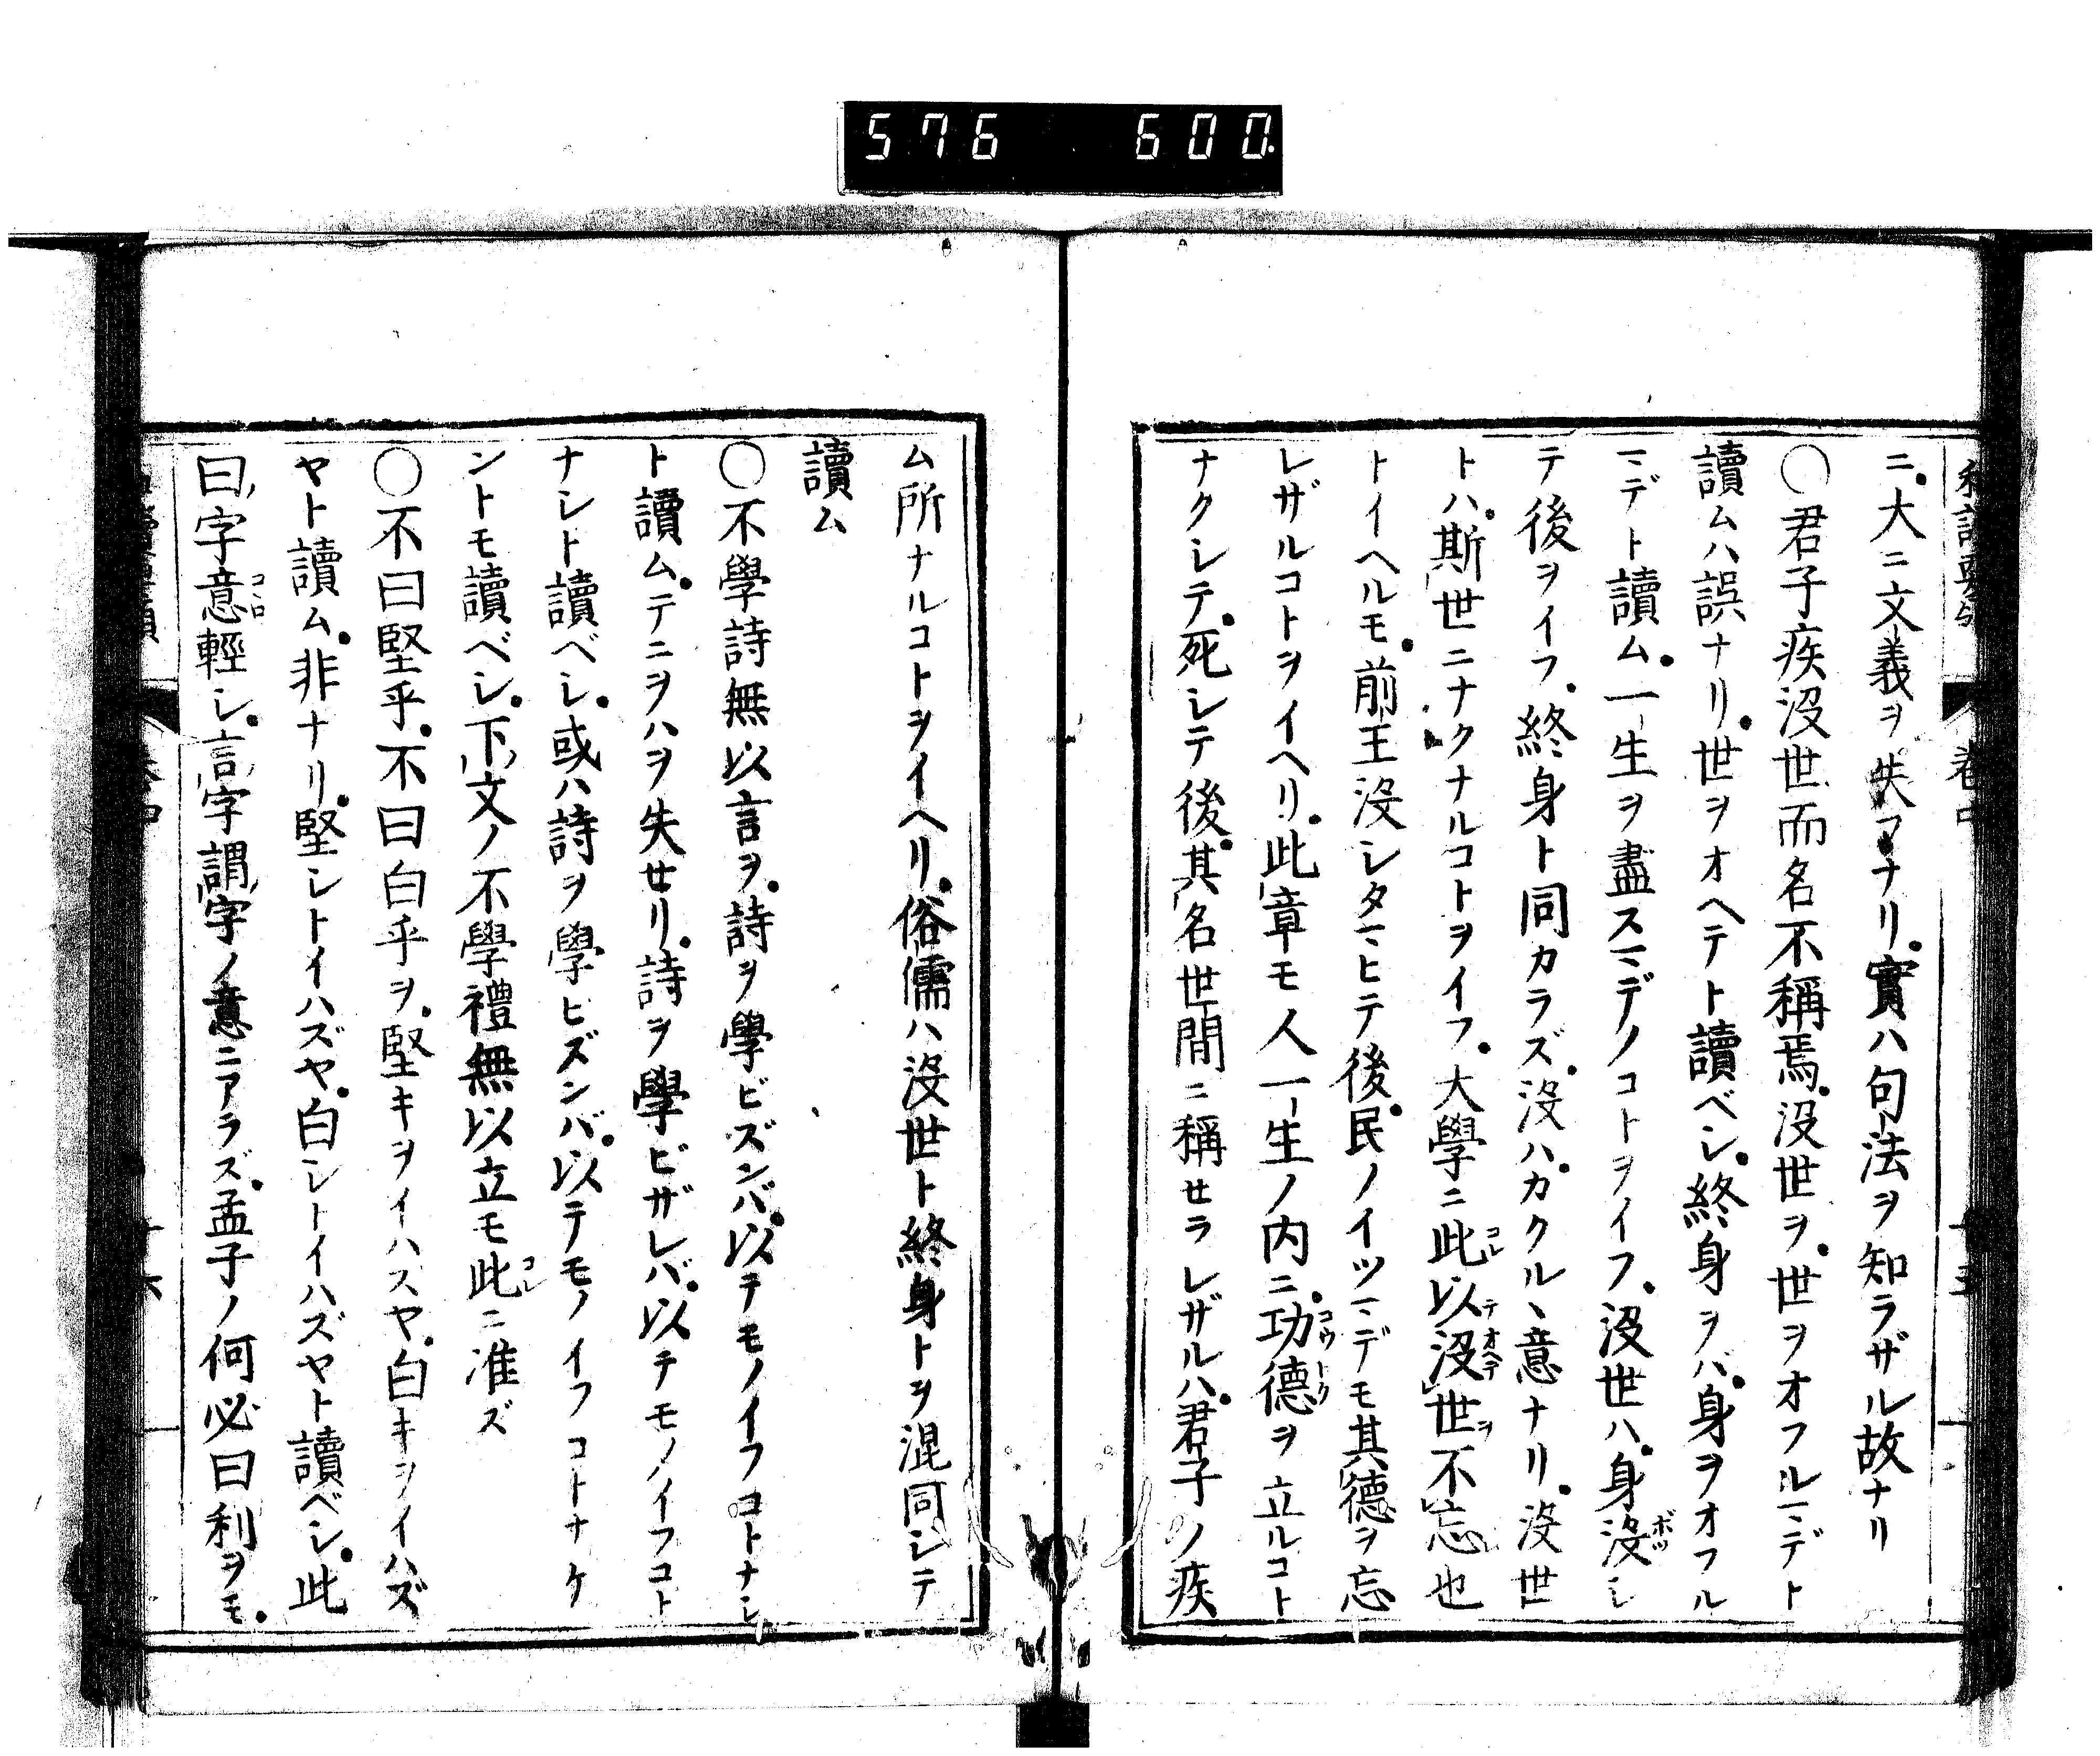 576 600.
卷中
ニ。大ニ文義ヲ失フナリ。實ハ句法ヲ知ラザル故ナリ
○君子疾没世而名不稱焉。没世ヲ。世ヲオフルマデト
讀ムハ誤ナリ。世ヲオヘテト讀ベシ。終身ヲバ。身ヲオフル
マデト讀ム。一生ヲ盡スマデノコトヲイフ。没世ハ。身没シ
テ後ヲイフ。終身ト同カラズ。没ハ。カクル丶意ナリ。没世
トハ。斯世ニナクナルコトヲイフ。大學ニ此以没世不忘也
トイヘルモ。前王没シタマヒテ後。民ノイツマデモ其德ヲ忘
レザルコトヲイヘリ。此章モ人一生ノ内ニ。功德ヲ立ルコト
ナクシテ。死シテ後。其名世間ニ稱セラレザルハ。君子ノ疾
ム所ナルコトヲイヘリ。俗儒ハ没世ト終身トヲ混同シテ
讀ム
○不學詩無以言ヲ。詩ヲ學ビズンバ。以テモノイフコトナシ
ト讀ム。テニヲハヲ失セリ。詩ヲ學ビザレバ。以テモノイフコト
ナシト讀ベシ。或ハ詩ヲ學ビズンバ。以テモノイフコトナケ
ントモ讀ベシ。下文ノ不學禮無以立モ此ニ准ズ
○不曰堅乎。不曰白乎ヲ。堅キヲイハスヤ。白キヲイハズ
ヤト讀ム。非ナリ。堅シトイハズヤ。白シトイハズヤト讀ベシ。此
曰字意輕シ。言字謂字ノ意ニアラズ。孟子ノ何必曰利ヲモ。